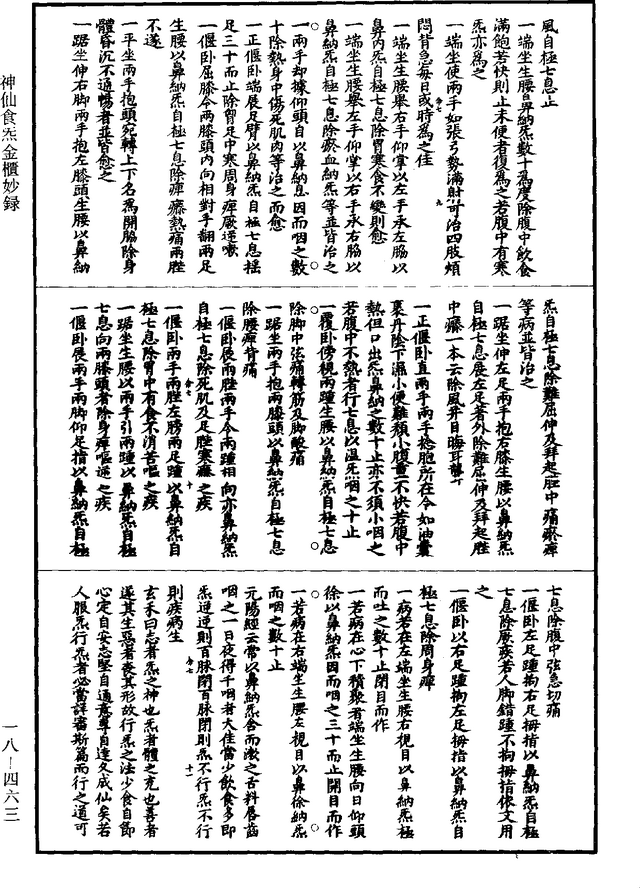 風自極七息止
一端坐生腰鼻納炁數十為度除腹中飲食
滿飽若快則止未便者復為之若腹中有寒
炁亦為之
一端坐使兩手如張弓勢滿射可治四肢煩
悶背急每日或時為之佳
一端坐生腰舉右手仰掌以左手承左脇以
鼻內炁自極七息除胃寒食不變則愈
一端坐生腰舉左手仰掌以右手承右脇以
鼻納炁自極七息除瘀血納炁等並皆治之
一兩手却據仰頭自以鼻納息因而咽之數
十除熱身中傷死肌肉等治之而愈
一正偃卧端展足臂以鼻納炁自極七息搖
足三十而止除胷足中寒周身痺厥逆嗽
一偃卧屈膝令兩膝頭內向相對手翻兩足
生腰以鼻納炁自極七息除痺疼熱痛兩脛
不遂
一平坐兩手抱頭宛轉上下名為開脇除身
體昏沉不通暢者並皆愈之
一踞坐伸右脚兩手抱左膝頭生腰以鼻納
炁自極七息除難屈伸及拜起脛中痛瘀痺
等病並皆治之
一踞坐伸左足兩手抱右膝生腰以鼻納炁
自極七息展左足著外除難屈伸及拜起脛
中疼一本云除風并目晦耳聾
一正偃卧直兩手兩手捻胞所在令如油囊
裹丹陰下濕小便難顙小腹重不快若腹中
熱但口出炁鼻納之數十止亦不須小咽之
若腹中不熱者行七息以溫炁咽之十止
一覆卧傍視兩踵生腰以鼻納炁自極七息
除脚中弦痛轉筋及脚酸痛
一踞坐兩手抱兩膝頭以鼻納炁自極七息
除腰痺背痛
一偃卧展兩脛兩手令兩踵相向亦鼻納炁
自極七息除死肌及足脛寒疼之疾
一偃卧兩手兩脛左膀兩足踵以鼻納炁自
極七息除胃中有食不消苦嘔之疾
一踞坐生腰以兩手引兩踵以鼻納炁自極
七息向兩膝頭者除身痺嘔逆之疾
一偃卧展兩手兩脚仰足指以鼻納炁自極
七息除腹中弦急切痛
一偃卧左足踵拘右足拇指以鼻納炁自極
七息除厥疾若人脚錯踵不拘拇指依文用
之
一偃卧以右足踵拘左足拇指以鼻納炁自
極七息除周身痺
一病若在左端坐生腰右視目以鼻納炁極
而吐之數十止閉目而作
一若病在心下積聚者端坐生腰向日仰頭
徐以鼻納炁因而咽之三十而止開目而作
一若病在右端坐生腰左視目以鼻徐納炁
而咽之數十止
元陽經云常以鼻納炁含而漱之舌料唇齒
咽之一日夜得千咽者大佳當少飲食多即
炁逆逆則百脉閉百脉閉則炁不行炁不行
則疾病生
玄禾曰志者炁之神也炁者體之充也善者
遂其生惡者喪其形故行炁之法少食自節
心定自安志堅自通意專自達久成仙矣若
人服炁行炁者必當詳審斯篇而行之道可
神仙食炁金櫃妙録
一八－四六三